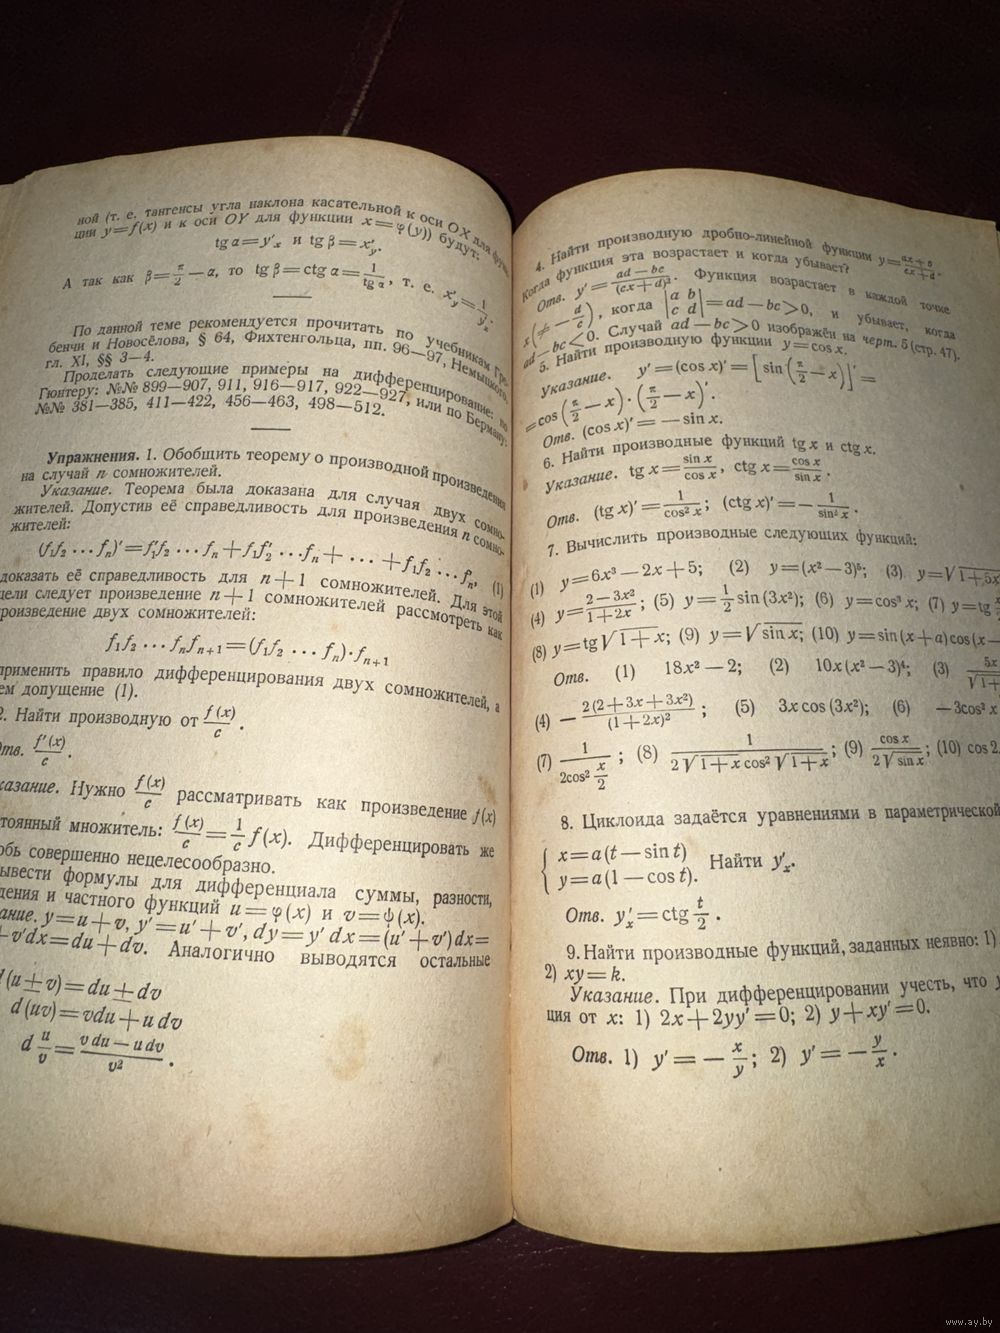 ной (т. е. тангенсы угла наклона касательной к оси OX для
ции y=f(x) и к оси OY для функции x=φ(y)) будут:
tg α=y′ₓ и tg β=x′ᵧ.
А так как β=π/2−α, то tg β=ctg α=1/tg α, т. е. x′ᵧ=1/y′ₓ.
По данной теме рекомендуется прочитать по учебникам Гре-
бенчи и Новосёлова, § 64, Фихтенгольца, пп. 96—97, Немыцкого,
гл. XI, §§ 3—4.
Проделать следующие примеры на дифференцирование: по
Гюнтеру: №№ 899—907, 911, 916—917, 922—927, или по Берману:
№№ 381—385, 411—422, 456—463, 498—512.
Упражнения. 1. Обобщить теорему о производной произведения
на случай n сомножителей.
Указание. Теорема была доказана для случая двух сомно-
жителей. Допустив её справедливость для произведения n сомно-
жителей:
(f₁f₂ ... fₙ)′=f′₁f₂ ... fₙ+f₁f′₂ ... fₙ+ ... +f₁f₂ ... f′ₙ, (1)
доказать её справедливость для n+1 сомножителей. Для этой
цели следует произведение n+1 сомножителей рассмотреть как
произведение двух сомножителей:
f₁f₂ ... fₙfₙ₊₁=(f₁f₂ ... fₙ)·fₙ₊₁
применить правило дифференцирования двух сомножителей, а
ем допущение (1).
2. Найти производную от f(x)/c.
Отв. f′(x)/c.
казание. Нужно f(x)/c рассматривать как произведение f(x)
тоянный множитель: f(x)/c=1/c f(x). Дифференцировать же
обь совершенно нецелесообразно.
ывести формулы для дифференциала суммы, разности,
дения и частного функций u=φ(x) и v=ψ(x).
ание. y=u+v, y′=u′+v′, dy=y′ dx=(u′+v′)dx=
+v′dx=du+dv. Аналогично выводятся остальные
d(u±v)=du±dv
d(uv)=vdu+u dv
d u/v=(v du−u dv)/v².
4. Найти производную дробно-линейной функции y=(ax+b)/(cx+d).
Когда функция эта возрастает и когда убывает?
Отв. y′=(ad−bc)/(cx+d)². Функция возрастает в каждой точке
x(≠−d/c), когда |a b; c d|=ad−bc>0, и убывает, когда
ad−bc<0. Случай ad−bc>0 изображён на черт. 5 (стр. 47).
5. Найти производную функции y=cos x.
Указание. y′=(cos x)′=[sin(π/2−x)]′=
=cos(π/2−x)·(π/2−x)′.
Отв. (cos x)′=−sin x.
6. Найти производные функций tg x и ctg x.
Указание. tg x=sin x/cos x, ctg x=cos x/sin x.
Отв. (tg x)′=1/cos² x; (ctg x)′=−1/sin² x.
7. Вычислить производные следующих функций:
(1) y=6x³−2x+5; (2) y=(x²−3)⁵; (3) y=√1+5x
(4) y=(2−3x²)/(1+2x); (5) y=1/2 sin(3x²); (6) y=cos³ x; (7) y=tg x
(8) y=tg√1+x; (9) y=√sin x; (10) y=sin(x+a)cos(x−
Отв. (1) 18x²−2; (2) 10x(x²−3)⁴; (3) 5x/√1+
(4) −2(2+3x+3x²)/(1+2x)²; (5) 3x cos(3x²); (6) −3cos² x
(7) 1/(2cos² x/2); (8) 1/(2√1+x cos²√1+x); (9) cos x/(2√sin x); (10) cos 2
8. Циклоида задаётся уравнениями в параметрической
{x=a(t−sin t)
y=a(1−cos t). Найти y′ₓ.
Отв. y′ₓ=ctg t/2.
9. Найти производные функций, заданных неявно: 1)
2) xy=k.
Указание. При дифференцировании учесть, что y
ция от x: 1) 2x+2yy′=0; 2) y+xy′=0.
Отв. 1) y′=−x/y; 2) y′=−y/x.
www.ay.by